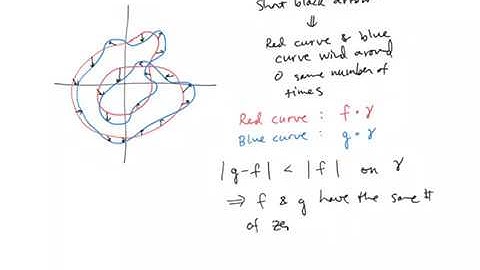 Short black arrow
⇓
Red curve & blue
curve wind around
0 same number of
times
Red curve : f∘γ
Blue curve : g∘γ
|g-f| < |f| on γ
⇒ f & g have the same #
of ze